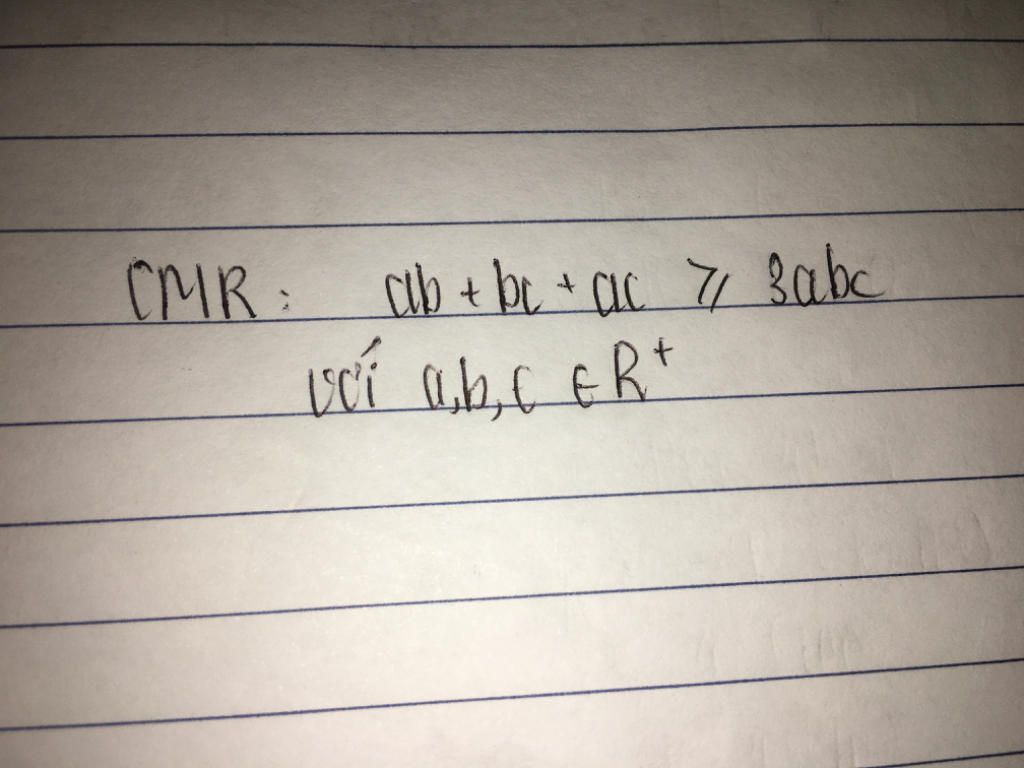 CMR: ab + bc + ac ⩾ 3abc
với a,b,c ∈ R⁺